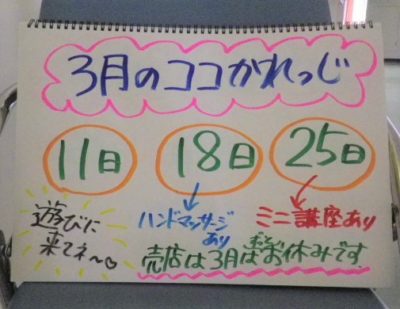 3月のココかれっじ
11日 18日 25日
遊びに
来てネ～♡
ハンドマッサージ
あり
ミニ講座あり
売店は3月はお休みです